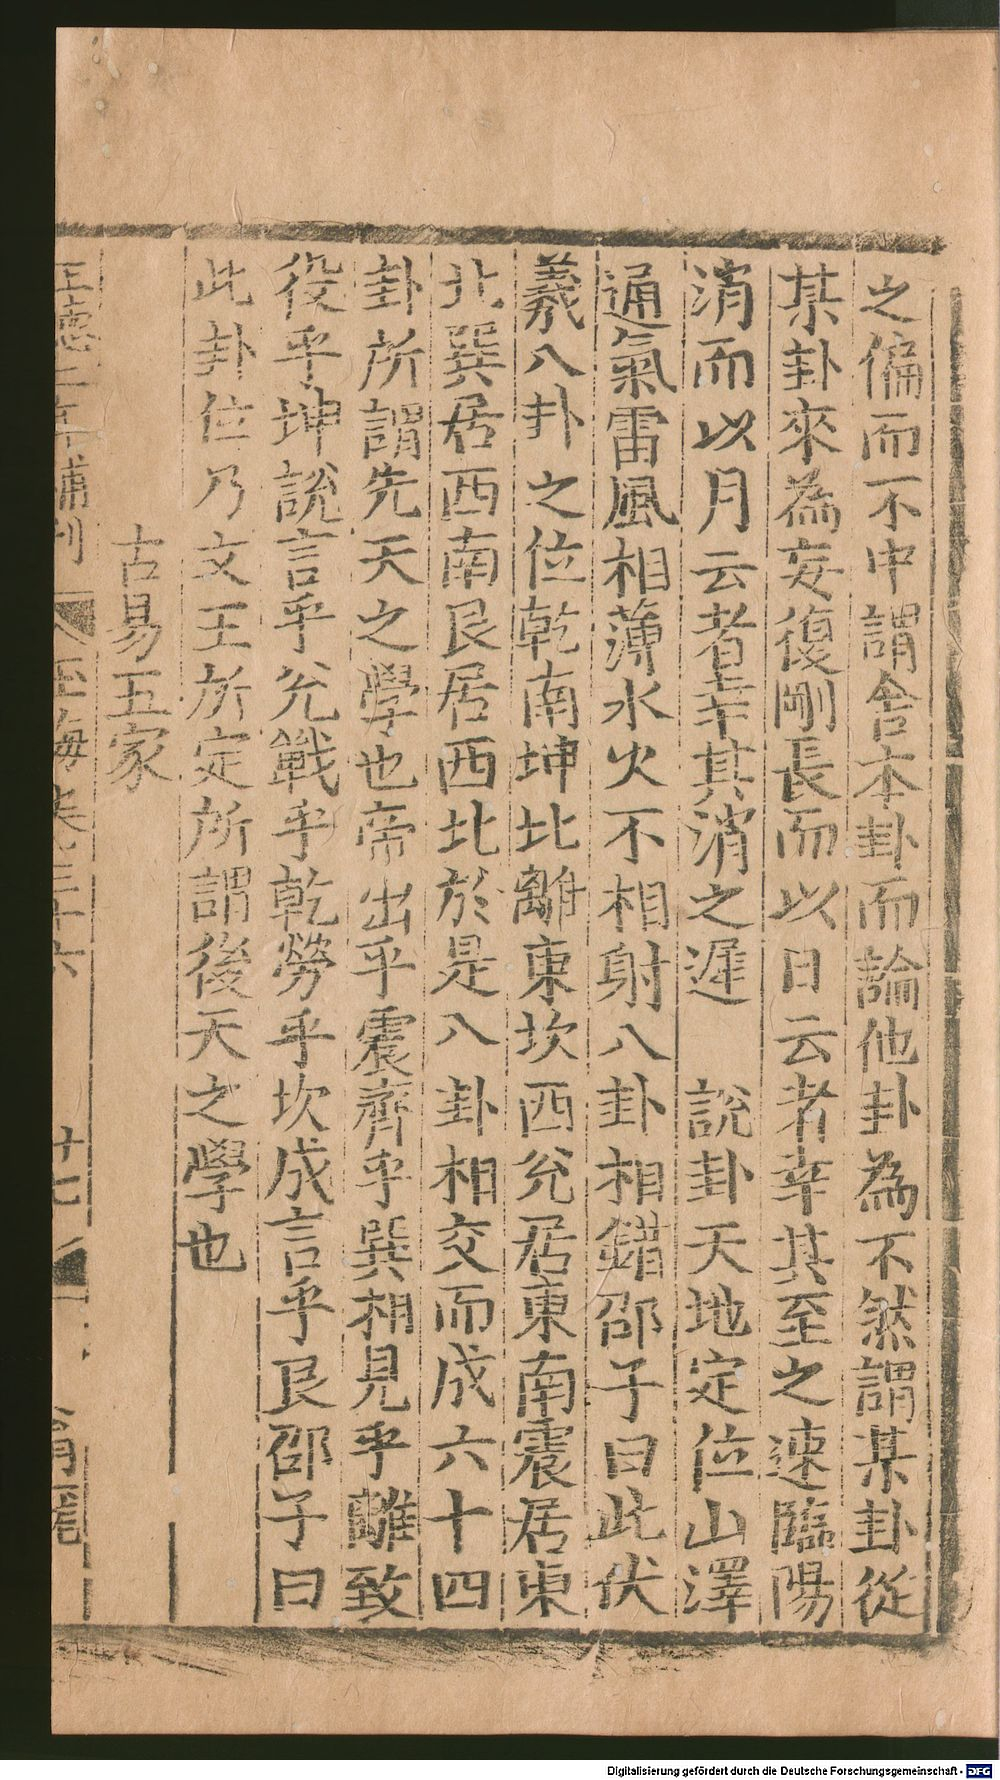 之偏而不中謂舎本卦而論他卦為不然謂某卦從
某卦來為妄復剛長而以日云者幸其至之速臨陽
消而以月云者幸其消之遲　說卦天地定位山澤
通氣雷風相薄水火不相射八卦相錯邵子曰此伏
羲八卦之位乾南坤北離東坎西兊居東南震居東
北巽居西南艮居西北於是八卦相交而成六十四
卦所謂先天之學也帝出乎震齊乎巽相見乎離致
役乎坤說言乎兊戰乎乾勞乎坎成言乎艮邵子曰
此卦位乃文王所定所謂後天之學也
古易五家
正德二年補刊　玉海卷三十六　十七
Digitalisierung gefördert durch die Deutsche Forschungsgemeinschaft - DFG